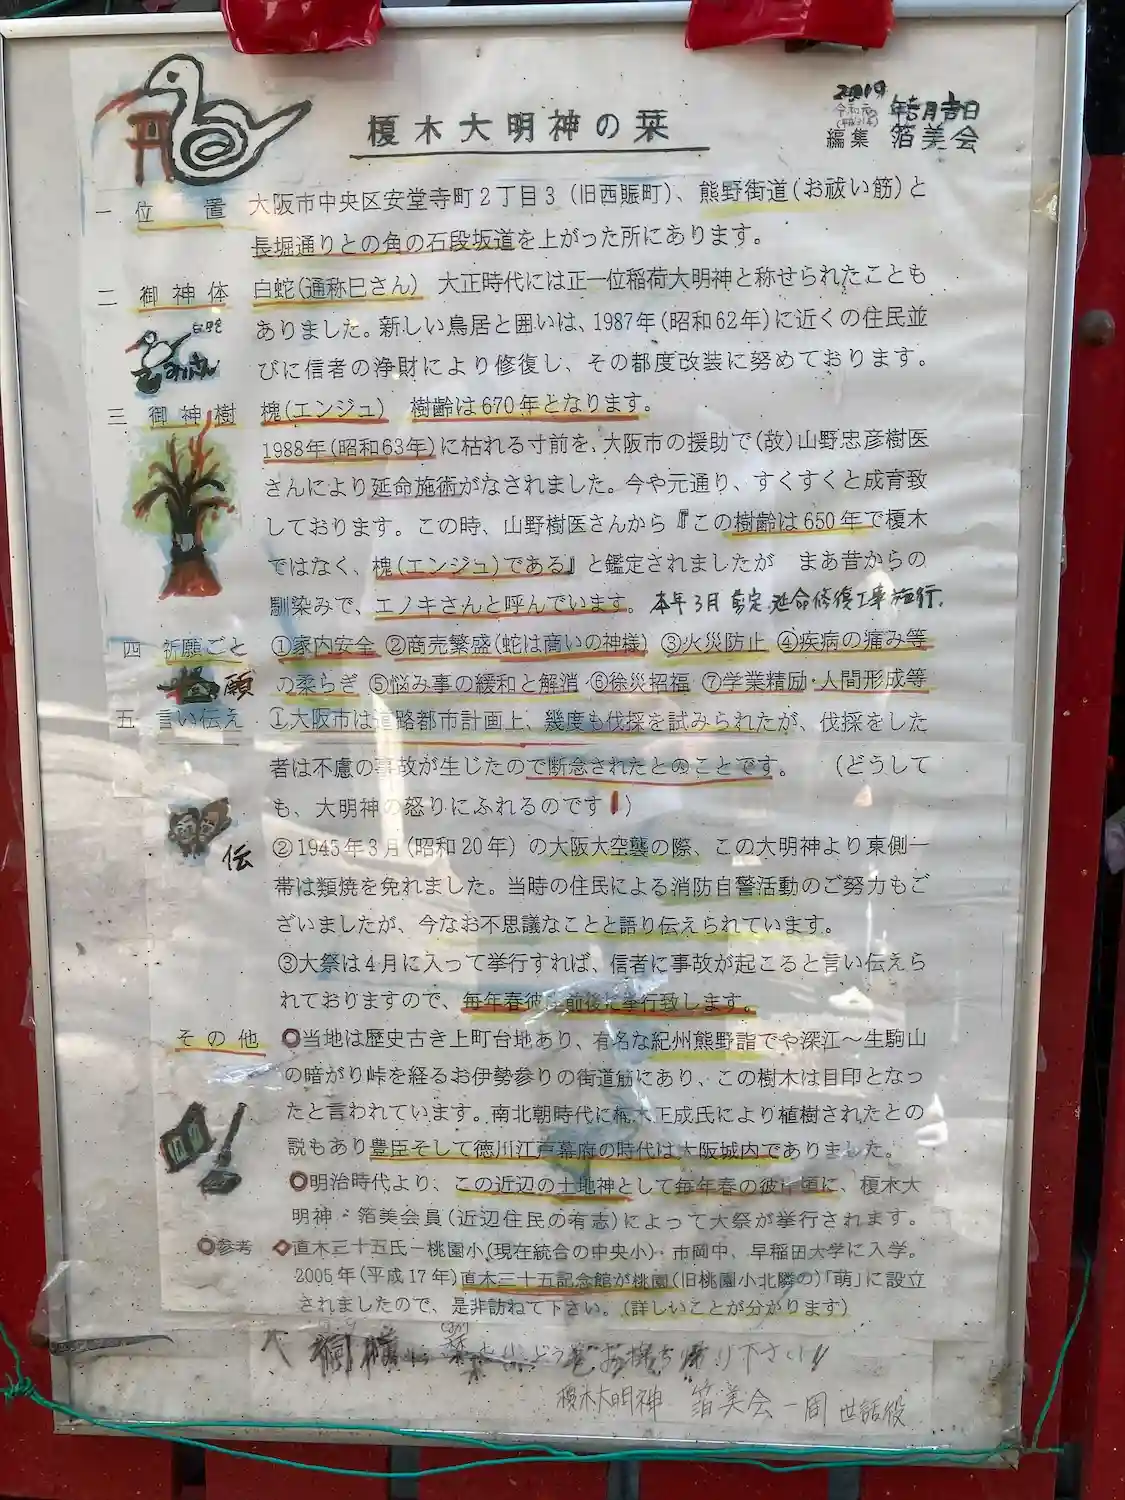 榎木大明神の栞
2019
令和元
年吉月吉日
編集 箔美会
一 位置 大阪市中央区安堂寺町2丁目3(旧西賑町)、熊野街道(お祓い筋)と
長堀通りとの角の石段坂道を上がった所にあります。
二 御神体 白蛇(通称巳さん) 大正時代には正一位稲荷大明神と称せられたことも
ありました。新しい鳥居と囲いは、1987年(昭和62年)に近くの住民並
びに信者の浄財により修復し、その都度改装に努めております。
みぃさん
三 御神樹 槐(エンジュ) 樹齢は670年となります。
1988年(昭和63年)に枯れる寸前を、大阪市の援助で(故)山野忠彦樹医
さんにより延命施術がなされました。今や元通り、すくすくと成育致
しております。この時、山野樹医さんから『この樹齢は650年で榎木
ではなく、槐(エンジュ)である』と鑑定されましたが まあ昔からの
馴染みで、エノキさんと呼んでいます。本年3月剪定、延命修復工事施行.
四 祈願ごと ①家内安全 ②商売繁盛(蛇は商いの神様) ③火災防止 ④疾病の痛み等
願 の柔らぎ ⑤悩み事の緩和と解消 ⑥徐災招福 ⑦学業精励・人間形成等
五 言い伝え ①大阪市は道路都市計画上、幾度も伐採を試みられたが、伐採をした
者は不慮の事故が生じたので断念されたとのことです。 (どうして
も、大明神の怒りにふれるのです!)
伝 ②1945年3月(昭和20年)の大阪大空襲の際、この大明神より東側一
帯は類焼を免れました。当時の住民による消防自警活動のご努力もご
ざいましたが、今なお不思議なことと語り伝えられています。
③大祭は4月に入って挙行すれば、信者に事故が起こると言い伝えら
れておりますので、毎年春彼岸前後に挙行致します。
その他 ○当地は歴史古き上町台地あり、有名な紀州熊野詣でや深江～生駒山
の暗がり峠を経るお伊勢参りの街道筋にあり、この樹木は目印となっ
たと言われています。南北朝時代に楠木正成氏により植樹されたとの
説もあり豊臣そして徳川江戸幕府の時代は大阪城内でありました。
○明治時代より、この近辺の土地神として毎年春の彼岸頃に、榎木大
明神・箔美会員(近辺住民の有志)によって大祭が挙行されます。
○参考 ◇直木三十五氏－桃園小(現在統合の中央小)・市岡中、早稲田大学に入学。
2005年(平成17年)直木三十五記念館が桃園(旧桃園小北隣の)「萌」に設立
されましたので、是非訪ねて下さい。(詳しいことが分かります)
どうぞお持ち帰り下さい!!
榎木大明神 箔美会一同 世話役